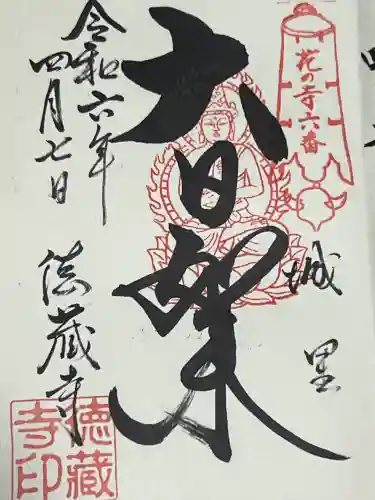 花の寺六番
城里
大日如来
令和六年
四月七日
徳蔵寺
徳蔵
寺印